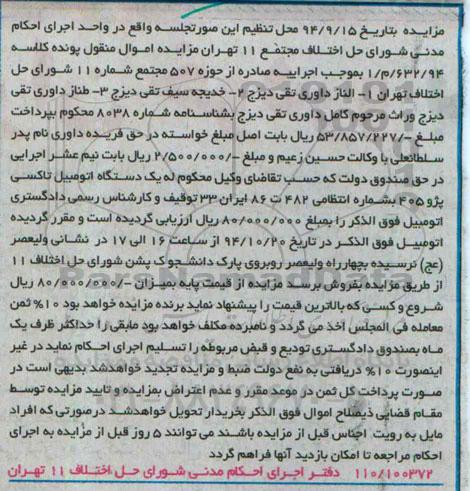 مزایده بتاریخ ۹۴/۹/۱۵ محل تنظیم این صورتجلسه واقع در واحد اجرای احکام
مدنی شورای حل اختلاف مجتمع ۱۱ تهران مزایده اموال منقول پونده کلاسه
۶۳۲/۹۴/م/۱ بموجب اجراییه صادره از حوزه ۵۰۷ مجتمع شماره ۱۱ شورای حل
اختلاف تهران ۱- الناز داوری تقی دیزج ۲- خدیجه سیف تقی دیزج ۳- طناز داوری تقی
دیزج وراث مرحوم کامل داوری تقی دیزج بشناسنامه شماره ۸۰۳۸ محکوم بپرداخت
مبلغ -/۵۳/۸۵۷/۲۲۷ ریال بابت اصل مبلغ خواسته در حق فریده داوری نام پدر
سلطانعلی با وکالت حسین زعیم و مبلغ -/۲/۵۰۰/۰۰۰ ریال بابت نیم عشر اجرایی
در حق صندوق دولت که حسب تقاضای وکیل محکوم له یک دستگاه اتومبیل تاکسی
پژو ۴۰۵ بشماره انتظامی ۴۸۲ ت ۸۶ ایران ۳۳ توقیف و کارشناس رسمی دادگستری
اتومبیل فوق الذکر را بمبلغ ۸۰/۰۰۰/۰۰۰ ریال ارزیابی گردیده است و مقرر گردیده
اتومبیل فوق الذکر در تاریخ ۹۴/۱۰/۲۰ از ساعت ۱۶ الی ۱۷ در نشانی ولیعصر
(عج) نرسیده بچهارراه ولیعصر روبروی پارک دانشجو ک بشن شورای حل اختلاف ۱۱
از طریق مزایده بفروش برسد مزایده از قیمت پایه بمیزان -/۸۰/۰۰۰/۰۰۰ ریال
شروع و کسی که بالاترین قیمت را پیشنهاد نماید برنده مزایده خواهد بود ۱۰% ثمن
معامله فی المجلس اخذ می گردد و نامبرده مکلف خواهد بود مابقی را حداکثر ظرف یک
ماه بصندوق دادگستری تودیع و قبض مربوطه را تسلیم اجرای احکام نماید در غیر
اینصورت ۱۰% دریافتی به نفع دولت ضبط و مزایده تجدید خواهدشد بدیهی است در
صورت پرداخت کل ثمن در موعد مقرر و عدم اعتراض بمزایده و تایید مزایده توسط
مقام قضایی ذیصلاح اموال فوق الذکر بخریدار تحویل خواهدشد در صورتی که افراد
مایل به رویت اجناس قبل از مزایده باشند می توانند ۵ روز قبل از مزایده به اجرای
احکام مراجعه تا امکان بازدید آنها فراهم گردد
۱۱۰/۱۰۰۳۷۲ دفتر اجرای احکام مدنی شورای حل اختلاف ۱۱ تهران